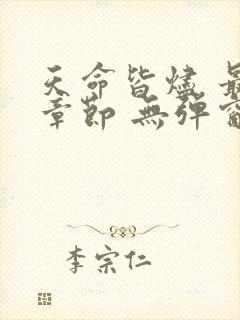 天命皆燼 最
章節 無彈窗
李宗仁